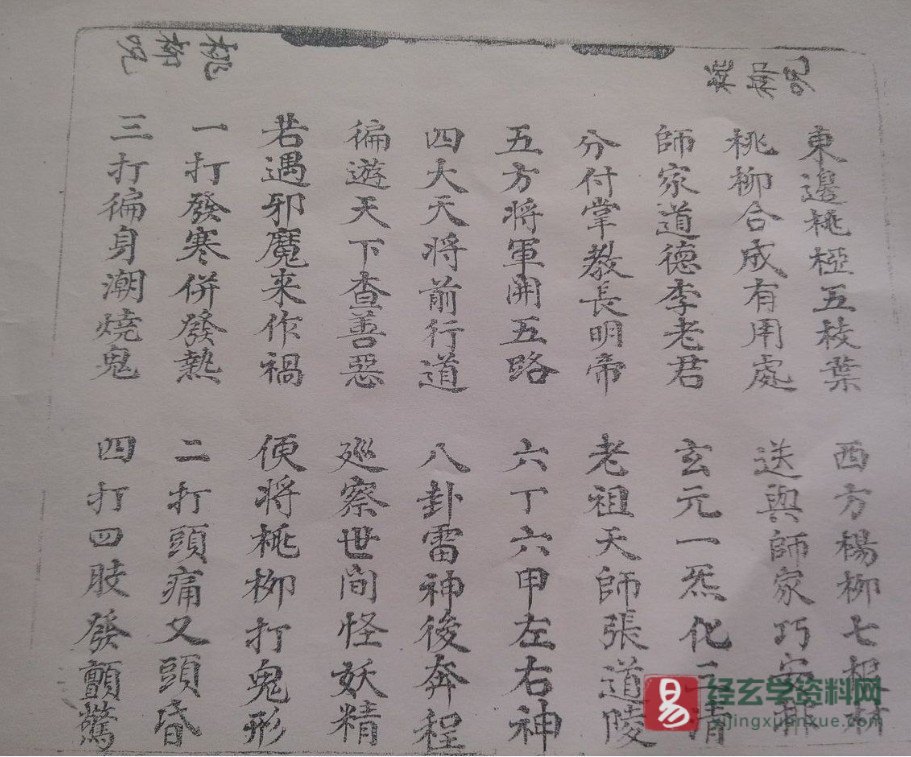 東邊桃椏五枝葉 西方楊柳七根枝
桃柳合成有用處 送與師家巧安排
師家道德李老君 玄元一炁化三清
分付掌教長明帝 老祖天師張道陵
五方將軍開五路 六丁六甲左右神
四大天將前行道 八卦雷神後奔程
徧遊天下查善惡 廵察世间怪妖精
若遇邪魔来作禍 便將桃柳打鬼形
一打發寒併發熱 二打頭痛又頭昏
三打徧身潮燒鬼 四打四肢發顫驚
桃柳咒
易 经玄学资料网
yijingxuanxue.com